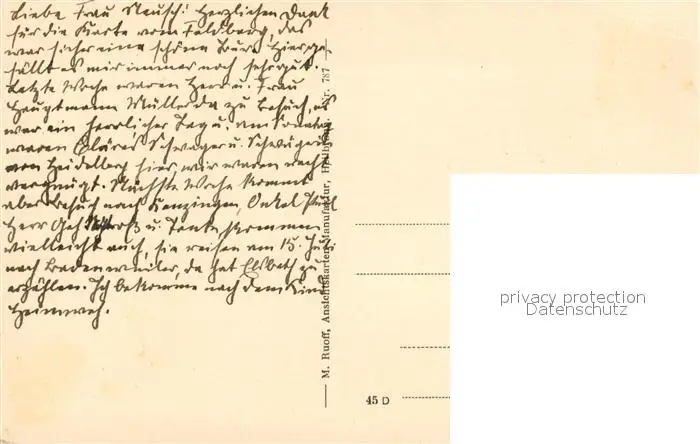 Liebe Frau Reusch! Herzlichen Dank
für die Karte vom Feldberg, das
war sicher eine schöne Tour. Hier ge-
fällt es mir immer noch sehr gut.
Letzte Woche waren Herr u. Frau
Hauptmann Müller da zu Besuch, es
war ein herrlicher Tag u. am Sonntag
waren Schwager u. Schwägerin
von Heidelberg hier, wir waren recht
vergnügt. Nächste Woche kommt
aber Besuch nach Kenzingen, Onkel
Herr u. Tante kommen
vielleicht auch, sie reisen am 15. Juli
nach Badenweiler, da hat Elsbeth zu
erzählen. Ich bekomme nach dem Kind
Heimweh.
M. Ruoff, Ansichtskarten-Manufaktur, Nr. 787
45 D
privacy protection
Datenschutz